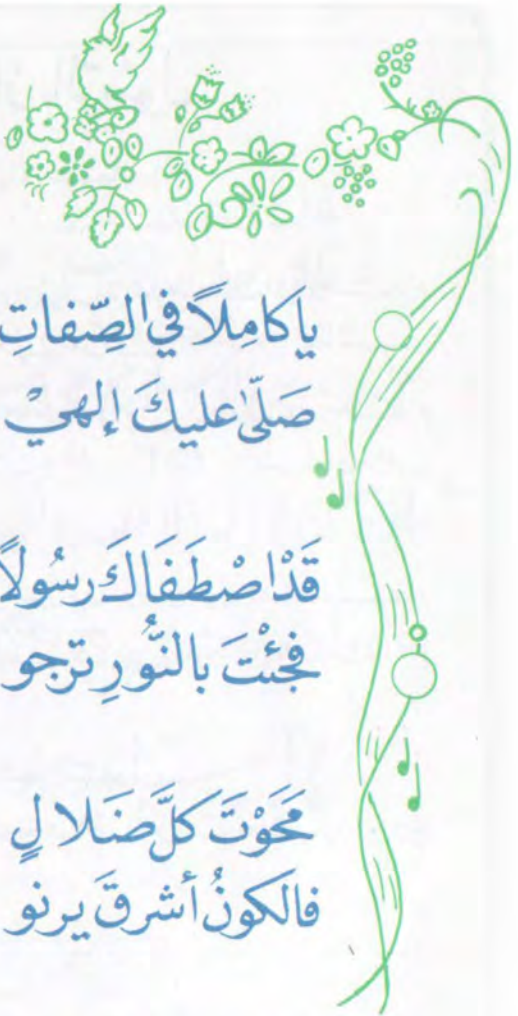 ياكامِلاً في الصِّفاتِ
صَلّىٰ عليكَ إلهيْ
قَدْ اصْطَفَاكَ رسُولاً
فجئْتَ بالنُّورِ ترجو
مَحَوْتَ كلَّ ضَلالٍ
فالكونُ أشرقَ يرنو